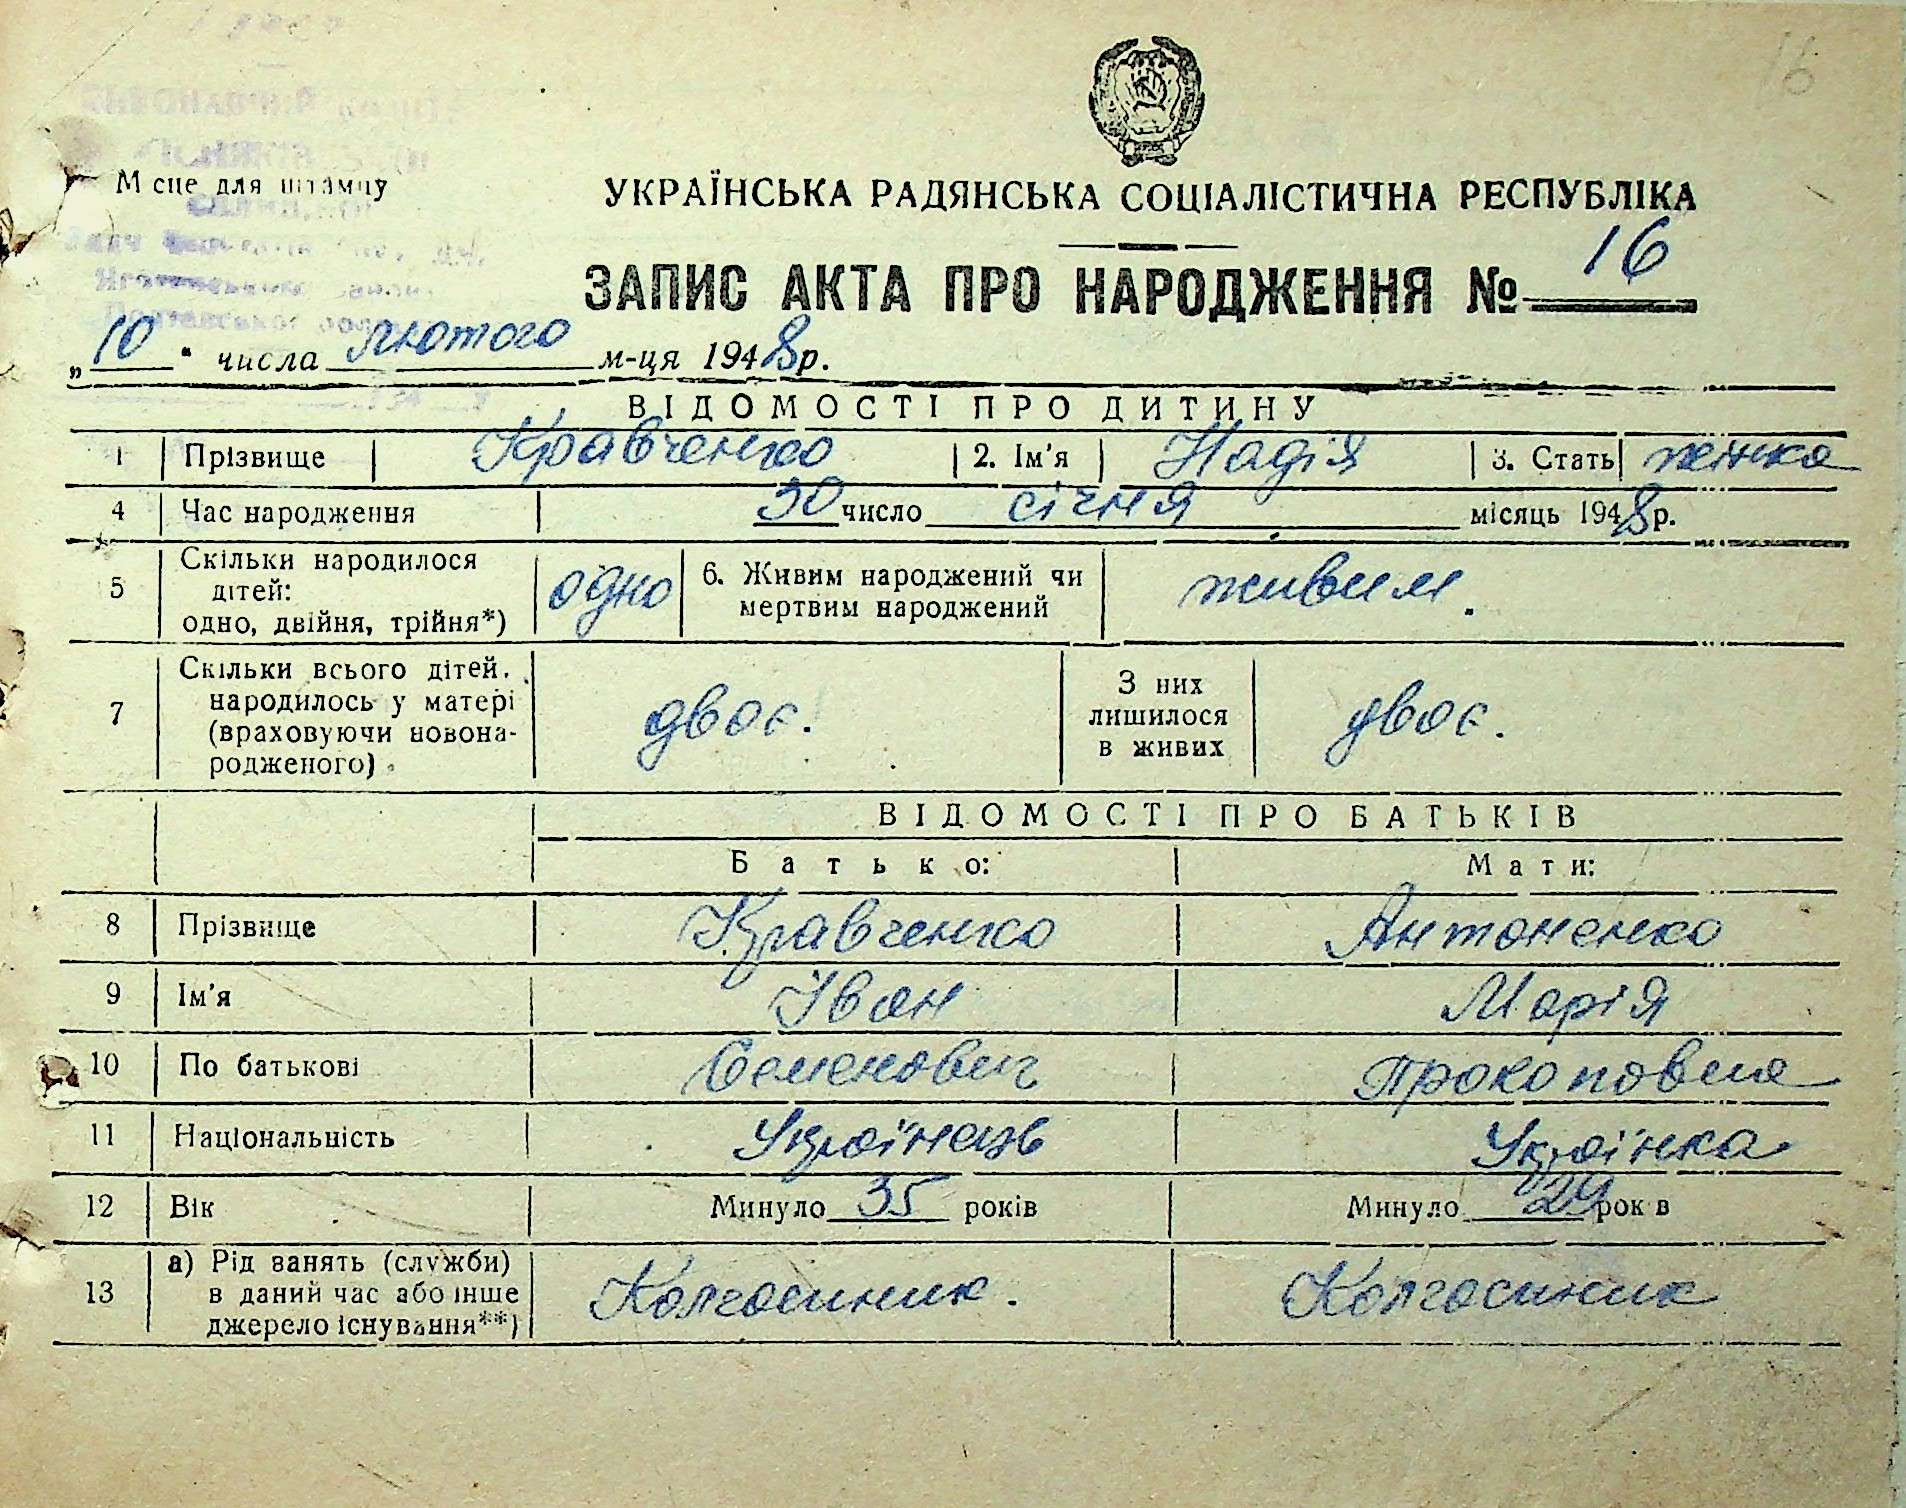 16
Місце для штампу
УКРАЇНСЬКА РАДЯНСЬКА СОЦІАЛІСТИЧНА РЕСПУБЛІКА
ЗАПИС АКТА ПРО НАРОДЖЕННЯ № 16
„10“ числа лютого м-ця 1948 р.
ВІДОМОСТІ ПРО ДИТИНУ
1 Прізвище Кравченко 2. Ім'я Надія 3. Стать жінка
4 Час народження 30 число січня місяць 1948 р.
5 Скільки народилося
дітей:
одно, двійня, трійня*) одно 6. Живим народжений чи
мертвим народжений живим.
7 Скільки всього дітей,
народилось у матері
(враховуючи новона-
родженого) двоє. З них
лишилося
в живих двоє.
ВІДОМОСТІ ПРО БАТЬКІВ
Батько: Мати:
8 Прізвище Кравченко Антоненко
9 Ім'я Іван Марія
10 По батькові Семенович Прокоповна
11 Національність Українець Українка
12 Вік Минуло 35 років Минуло 29 рок в
13 а) Рід занять (служби)
в даний час або інше
джерело існування**) Колгоспник. Колгоспник